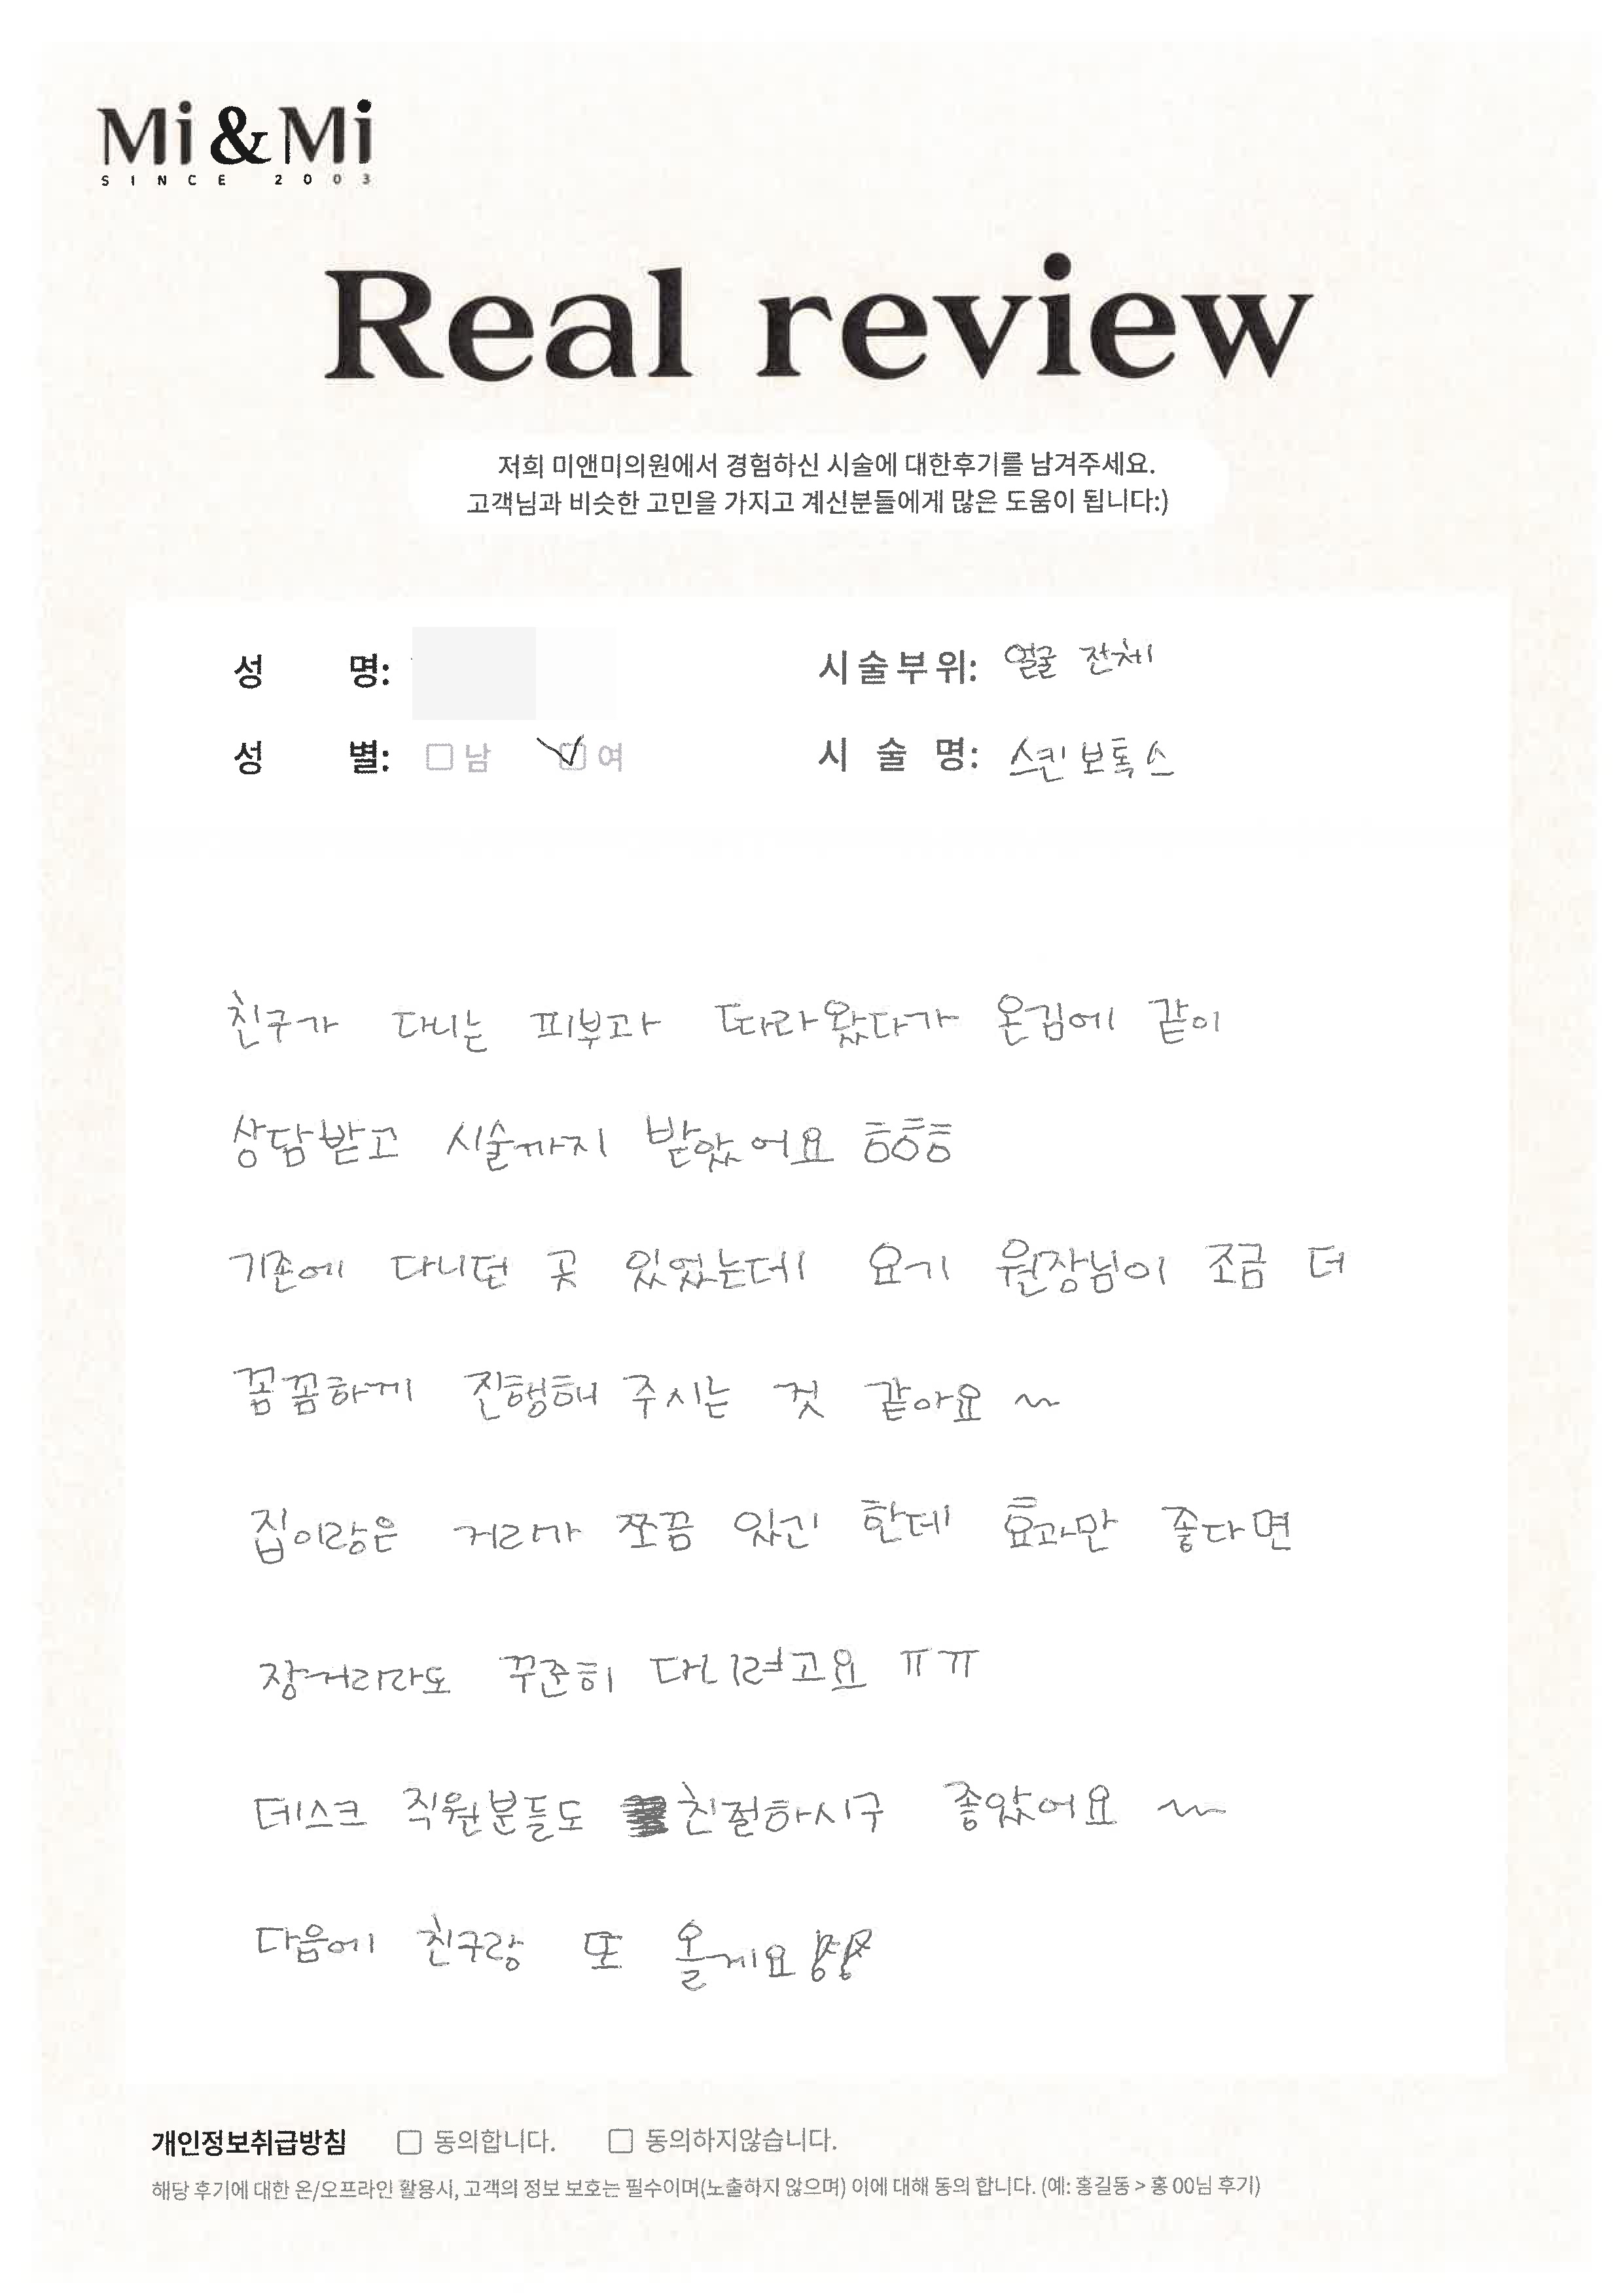 Mi&Mi
SINCE 2003
Real review
저희 미앤미의원에서 경험하신 시술에 대한후기를 남겨주세요.
고객님과 비슷한 고민을 가지고 계신분들에게 많은 도움이 됩니다:)
성 명: 시술부위: 얼굴 전체
성 별: □남 ☑여 시 술 명: 스킨보톡스
친구가 다니는 피부과 따라왔다가 온김에 같이
상담받고 시술까지 받았어요 ㅎㅎㅎ
기존에 다니던 곳 있었는데 요기 원장님이 조금 더
꼼꼼하게 진행해 주시는 것 같아요 ~
집이랑은 거리가 쪼끔 있긴 한데 효과만 좋다면
장거리라도 꾸준히 다니려고요 ㅠㅠ
데스크 직원분들도 친절하시구 좋았어요 ~
다음에 친구랑 또 올게요
개인정보취급방침 □ 동의합니다. □ 동의하지않습니다.
해당 후기에 대한 온/오프라인 활용시, 고객의 정보 보호는 필수이며(노출하지 않으며) 이에 대해 동의 합니다. (예: 홍길동 > 홍00님 후기)